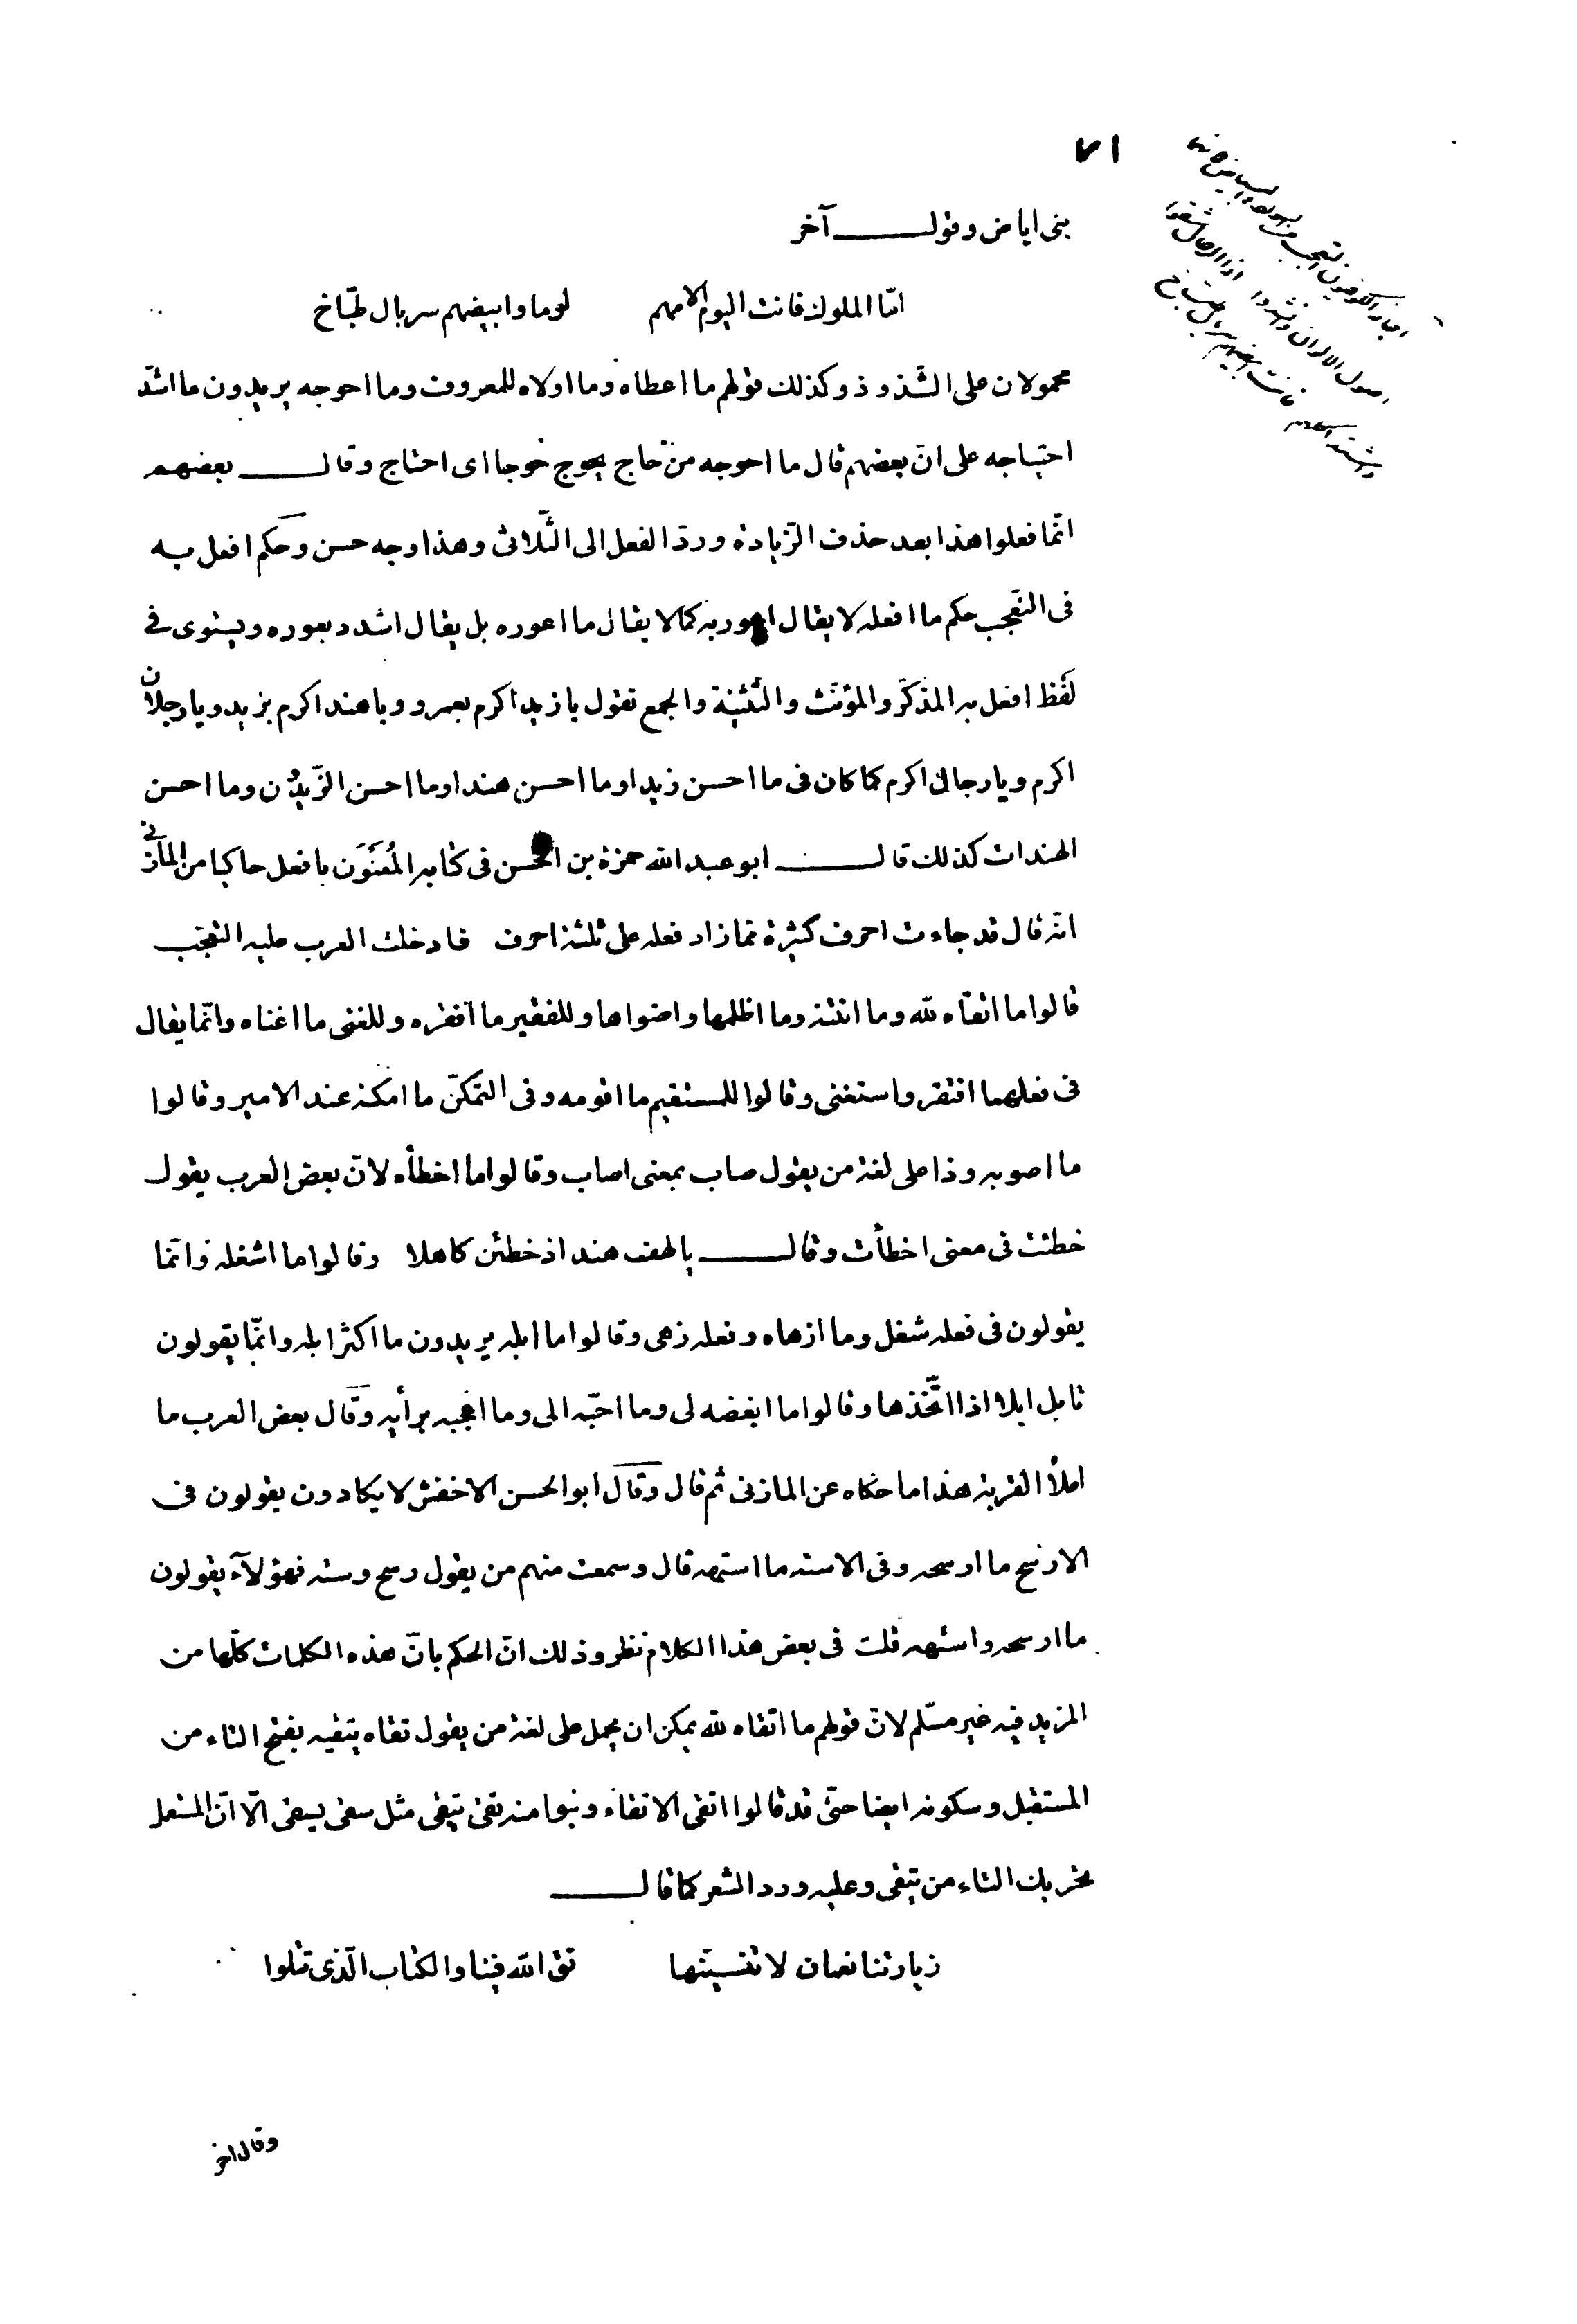 ٧١
بنى اباض وقول آخر
امّا الملوك فانت اليوم الامهم لوما وابيضهم سربال طبّاخ
محمولان على الشّذوذ وكذلك قولهم ما اعطاه وما اولاه للمعروف وما احوجه يريدون ما اشدّ
احتياجه على انّ بعضهم قال ما احوجه من حاج يحوج حوجا اى احتاج وقال بعضهم
انّما فعلوا هذا بعد حذف الزّيادة وردّ الفعل الى الثّلاثى وهذا وجه حسن وحكم افعل به
فى التّعجّب حكم ما افعله لا يقال اعور به كما لا يقال ما اعوره بل يقال اشدد بعوره ويستوى فى
لفظ افعل به المذكّر والمؤنّث والتّثنية والجمع تقول يا زيد اكرم بعمرو ويا هند اكرم بزيد ويا رجلان
اكرم ويا رجال اكرم كما كان فى ما احسن زيدا وما احسن هندا وما احسن الزّيدون وما احسن
الهندات كذلك قال ابو عبد الله حمزة بن الحسن فى كتابه المُعَنْوَن بافعل حاكيا من المازنى
انّه قال قد جاءت احرف كثيرة ممّا زاد فعله على ثلثة احرف فادخلت العرب عليه التعجّب
قالوا ما اتقاه لله وما انتنه وما اظلمها واضواها وللفقير ما افقره وللغنى ما اغناه وانّما يقال
فى فعلهما افتقر واستغنى وقالوا للمستقيم ما اقومه وفى التمكّن ما امكنه عند الامير وقالوا
ما اصوبه وذا على لغة من يقول صاب بمعنى اصاب وقالوا ما اخطأه لانّ بعض العرب يقول
خطئت فى معنى اخطأت وقال يا لهف هند اذ خطئن كاهلا وقالوا ما اشغله وانّما
يقولون فى فعله شغل وما ازهاه وفعله زهى وقالوا ما ابله يريدون ما اكثر ابله وانّما يقولون
تابل ابلا اذا اتّخذها وقالوا ما ابغضه لى وما احبّه الى وما اعجبه برأيه وقال بعض العرب ما
املأ القربة هذا ما حكاه عن المازنى ثم قال وقال ابو الحسن الاخفش لا يكادون يقولون فى
الارسح ما ارسحه وفى الاسته ما استهه قال وسمعت منهم من يقول رسح وسته فهؤلآء يقولون
ما ارسحه واستهه قلت فى بعض هذا الكلام نظر وذلك انّ الحكم بانّ هذه الكلمات كلّها من
المزيد فيه غير مسّلم لانّ قولهم ما اتقاه لله يمكن ان يحمل على لغة من يقول تقاه يتقيه بفتح التاء من
المستقبل وسكونه ايضا حتّى قد قالوا اتقى الاتقاء وبنوا منه تقى يتقى مثل سقى يسقى الّا انّ المستعمل
تحريك التاء من يتقى وعليه ورد الشعر كما قال
زيادتنا نعمان لا تنسينّها تق الله فينا والكتاب الّذى تتلوا
وقال اخر